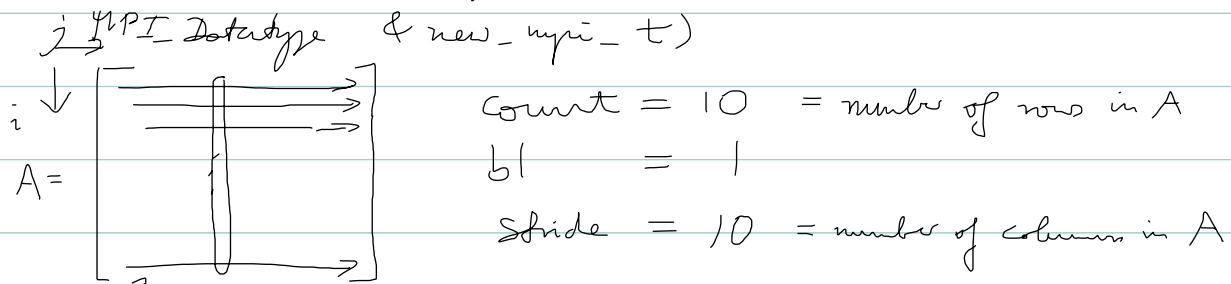 j MPI_Datatype & new_mpi_t)
i count = 10 = number of rows in A
A = bl = 1
stride = 10 = number of columns in A